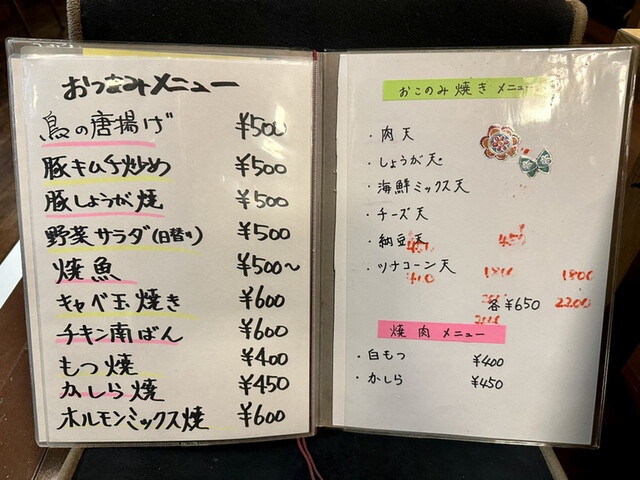 おつまみメニュー
鳥の唐揚げ ¥500
豚キムチ炒め ¥500
豚しょうが焼 ¥500
野菜サラダ(日替り) ¥500
焼魚 ¥500〜
キャベ玉焼き ¥600
チキン南ばん ¥600
もつ焼 ¥400
かしら焼 ¥450
ホルモンミックス焼 ¥600
おこのみ焼きメニュー
・肉天
・しょうが天
・海鮮ミックス天
・チーズ天
・納豆天
450
・ツナコーン天
1800
各¥650
2200
焼肉メニュー
・白もつ ¥400
・かしら ¥450